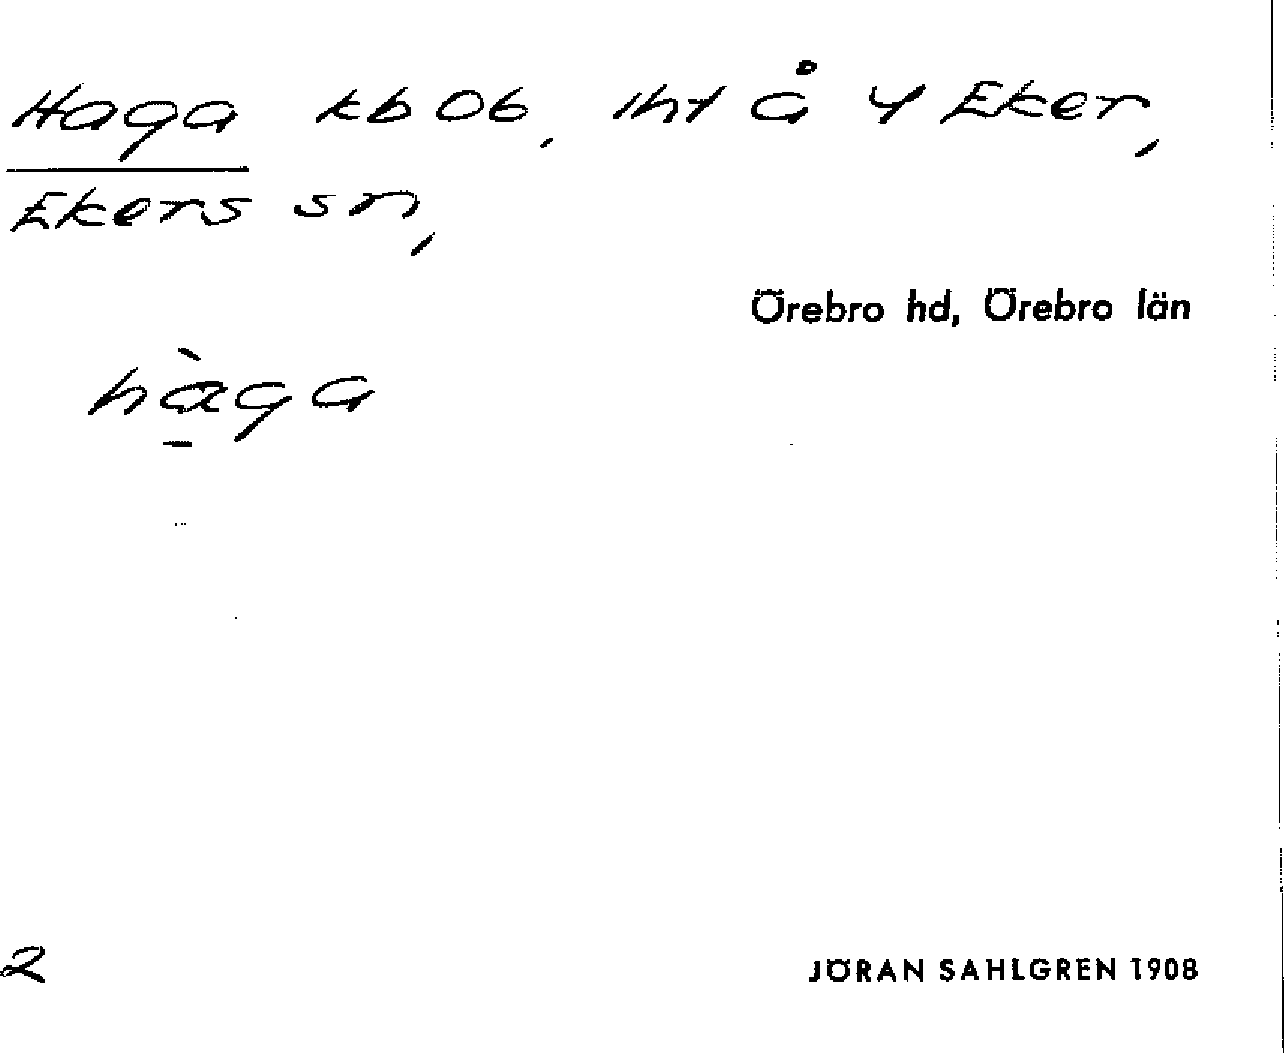 Haga kb 06, lht å 4 Eker,
Ekers sn,
Örebro hd, Örebro län
hàga
2
JÖRAN SAHLGREN 1908